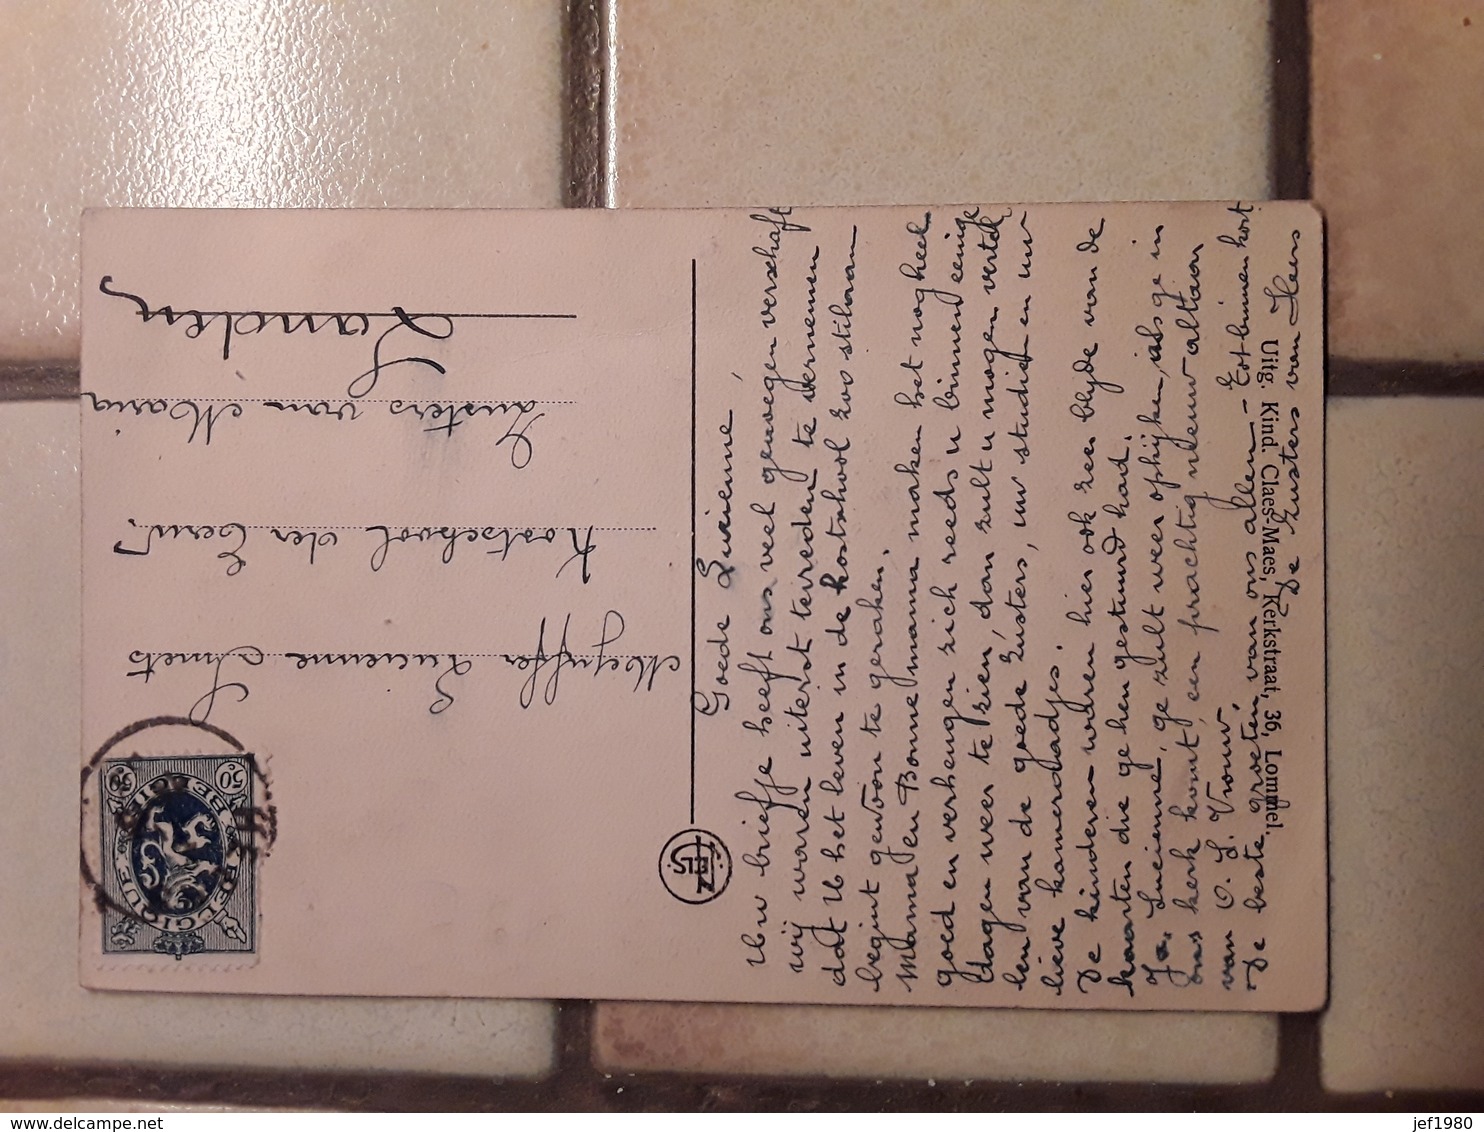 Goede Lucienne,
Uw briefje heeft ons veel genoegen verschaft
wij waren uiterst tevreden te vernemen
dat U het leven in de kostschool zoo stilaan
begint gewoon te geraken.
Mama en Bonnemama maken het nog heel
goed en verheugen zich reeds u binnen eenige
dagen weer te zien, dan zult u mogen vertel
len van de goede Zusters, uw studiën en uw
lieve kameraadjes.
De kinderen waren hier ook zeer blijde van de
kaarten die ge hen gestuurd had.
Ja, Lucienne, ge zult weer opkijken, als ge in
ons kerk komt, een prachtig nieuw altaar
van O. L. Vrouw.
De beste groeten van ons allen – Tot binnen kort
De Zusters van
Uitg. Kind. Claes-Maes, Kerkstraat, 36, Lommel.
Mejuffer Lucienne Smets
Kostschool der Eerw.
Zusters van Maria
Landen
BELGIQUE
BELGIË
50c
50c
belgique-delcampe.net
jef1980